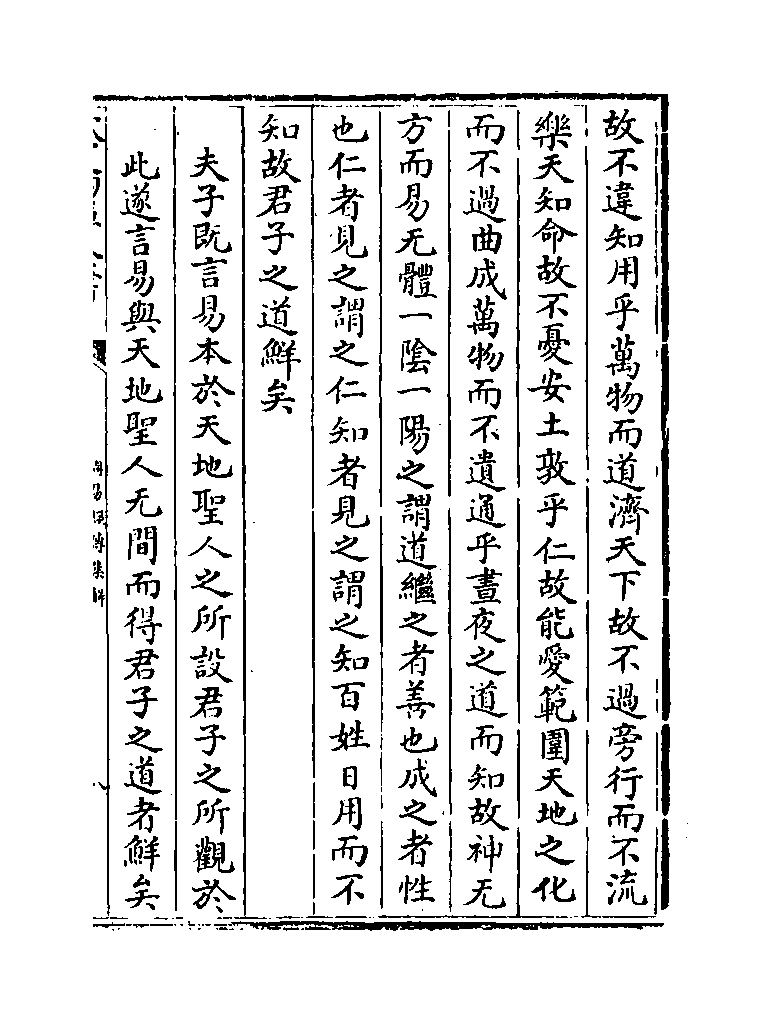 故不違知用乎萬物而道濟天下故不過旁行而不流
樂天知命故不憂安土敦乎仁故能愛範圍天地之化
而不過曲成萬物而不遺通乎晝夜之道而知故神无
方而易无體一陰一陽之謂道繼之者善也成之者性
也仁者見之謂之仁知者見之謂之知百姓日用而不
知故君子之道鮮矣
夫子既言易本於天地聖人之所設君子之所觀於
此遂言易與天地聖人无間而得君子之道者鮮矣
八